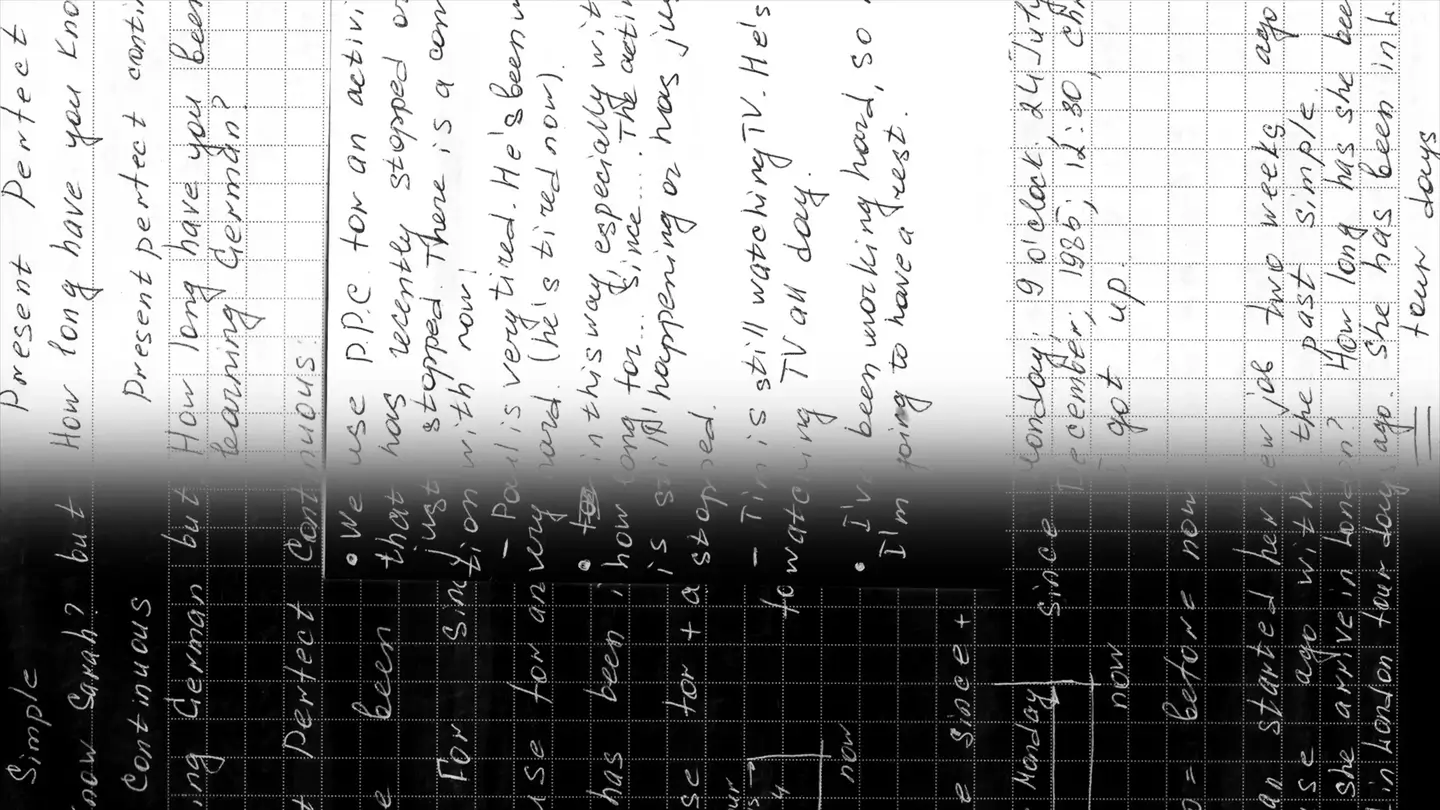 Simple Present Perfect
now Sarah? but How long have you kno
Continuous Present perfect conti
ing German but How long have you been
learning German?
t perfect Continuous:
• We use P.P.C. for an activi
e been that has recently stopped o
just stopped. There is a con
For Since tion with now!
– Paul is very tired. He's been w
use for an very hard. (he's tired now).
• in this way, especially wit
has been i how long for... Since.... The actin
is still happening or has jus
se for + a stopped.
– Tim is still watching TV. He's
watching TV all day.
now
• I've been working hard, so
I'm going to have a rest.
e since +
Monday; 9 o'clock. 24 July
Since December; 1985; 12:30, Ch
now I got up.
= before now
an started her new job two weeks ago
se ago with the past simple.
she arrive in London? How long has she bee
in London four days ago. She has been in L.
four days